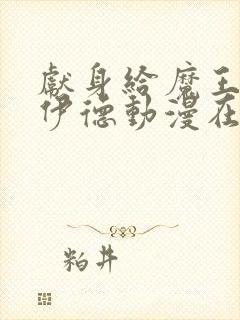 獻身給魔王
伊德動漫在
粕井